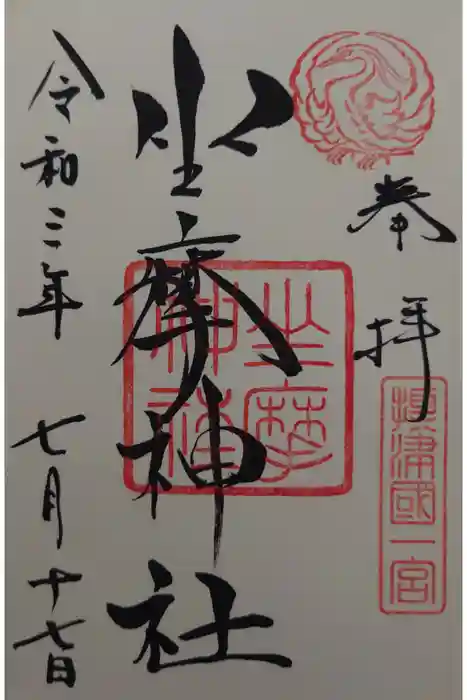 奉拝
攝津國一宮
坐摩神社
坐摩神社
令和三年 七月十七日